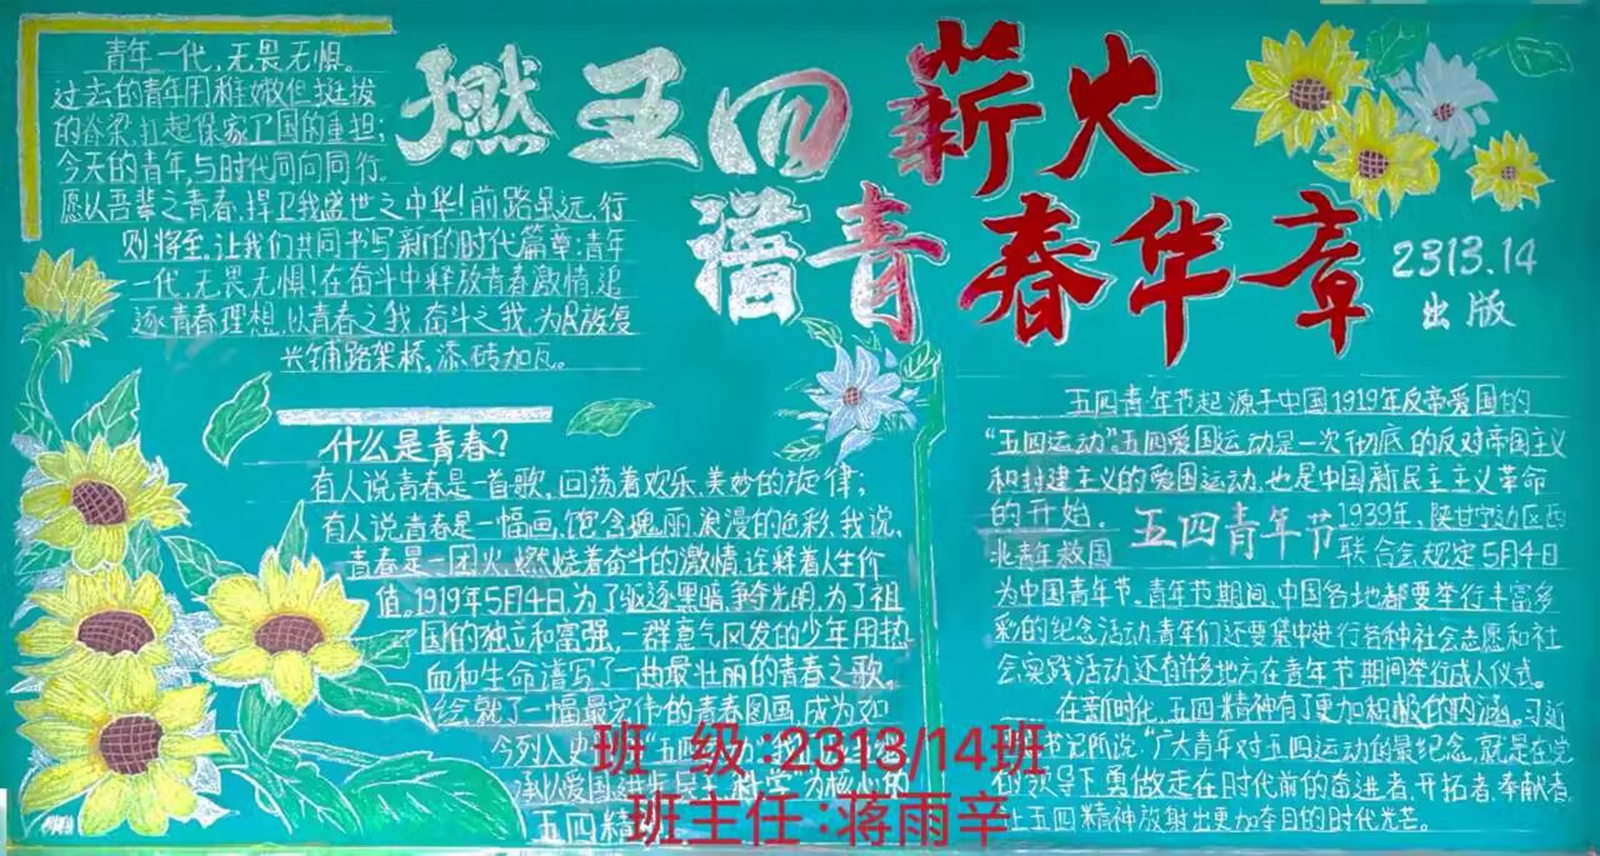 燃五四薪火
谱青春华章
2313.14
出版
青年一代,无畏无惧。
过去的青年用稚嫩但挺拔
的脊梁,扛起保家卫国的重担;
今天的青年,与时代同向同行。
愿以吾辈之青春,捍卫我盛世之中华!前路虽远,行
则将至。让我们共同书写新的时代篇章:青年
一代,无畏无惧!在奋斗中释放青春激情,追
逐青春理想,以青春之我,奋斗之我,为民族复
兴铺路架桥,添砖加瓦。
什么是青春?
有人说青春是一首歌,回荡着欢乐,美妙的旋律;
有人说青春是一幅画,饱含瑰丽,浪漫的色彩,我说,
青春是一团火,燃烧着奋斗的激情,诠释着人生价
值。1919年5月4日,为了驱逐黑暗,争夺光明,为了祖
国的独立和富强,一群意气风发的少年用热
血和生命谱写了一曲最壮丽的青春之歌。
绘就了一幅最宏伟的青春图画,成为如
今列入史
承以爱国,进步,民主,科学,为核心的
五四精
五四青年节起源于中国1919年反帝爱国的
“五四运动”,五四爱国运动是一次彻底的反对帝国主义
和封建主义的爱国运动,也是中国新民主主义革命
的开始。
五四青年节
1939年,陕甘宁边区西
北青年救国
联合会规定5月4日
为中国青年节。青年节期间,中国各地都要举行丰富多
彩的纪念活动,青年们还要集中进行各种社会志愿和社
会实践活动,还有许多地方在青年节期间举行成人仪式。
在新时代,五四精神有了更加积极的内涵。习近
书记所说“广大青年对五四运动的最纪念,就是在党
的领导下,勇做走在时代前的奋进者,开拓者,奉献者,
让五四精神放射出更加夺目的时代光芒。
班 级:2313/14班
班主任:蒋雨辛